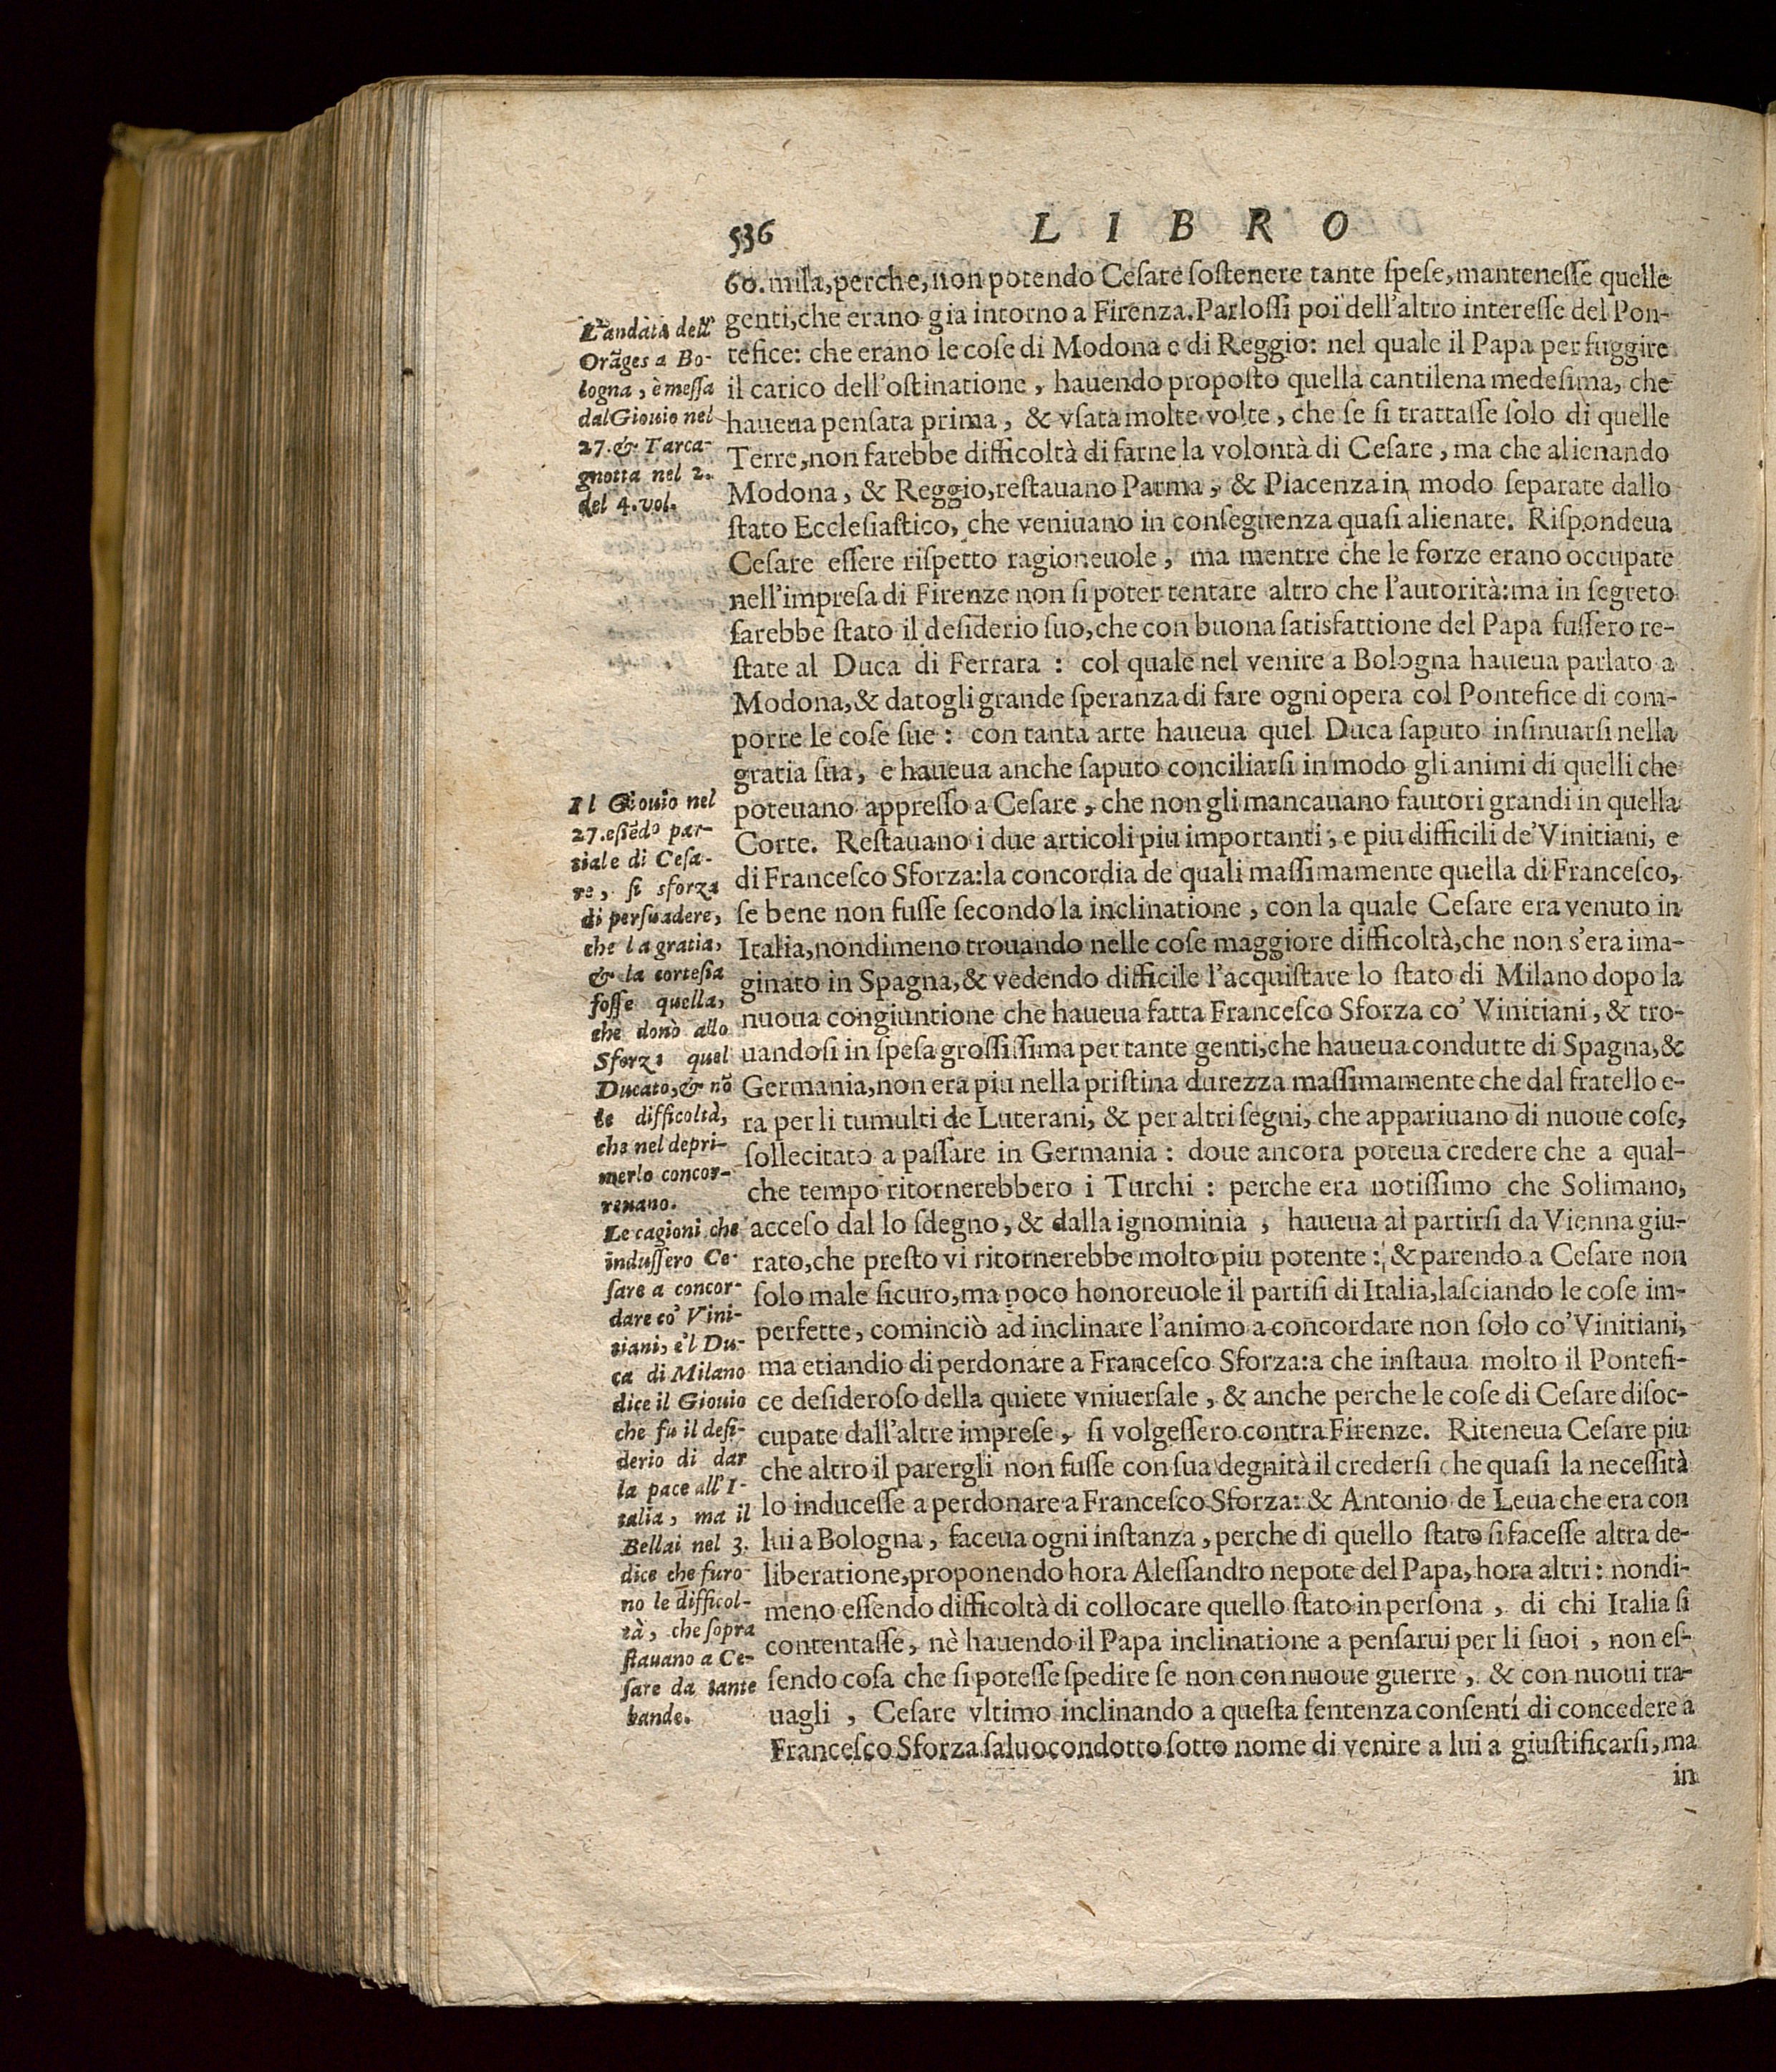 536
LIBRO
60. mila, perche, non potendo Cesare sostenere tante spese, mantenesse quelle
genti, che erano gia intorno a Firenza. Parlossi poi dell'altro interesse del Pon-
tefice: che erano le cose di Modona e di Reggio: nel quale il Papa per fuggire
il carico dell'ostinatione, hauendo proposto quella cantilena medesima, che
haueua pensata prima, & vsata molte volte, che se si trattasse solo di quelle
Terre, non farebbe difficoltà di farne la volontà di Cesare, ma che alienando
Modona, & Reggio, restauano Parma, & Piacenza in modo separate dallo
stato Ecclesiastico, che veniuano in conseguenza quasi alienate. Rispondeua
Cesare essere rispetto ragioneuole, ma mentre che le forze erano occupate
nell'impresa di Firenze non si poter tentare altro che l'autorità: ma in segreto
sarebbe stato il desiderio suo, che con buona satisfattione del Papa fussero re-
state al Duca di Ferrara: col quale nel venire a Bologna haueua parlato a
Modona, & datogli grande speranza di fare ogni opera col Pontefice di com-
porre le cose sue: con tanta arte haueua quel Duca saputo insinuarsi nella
gratia sua, e haueua anche saputo conciliarsi in modo gli animi di quelli che
poteuano appresso a Cesare, che non gli mancauano fautori grandi in quella
Corte. Restauano i due articoli piu importanti, e piu difficili de' Vinitiani, e
di Francesco Sforza: la concordia de quali massimamente quella di Francesco,
se bene non fusse secondo la inclinatione, con la quale Cesare era venuto in
Italia, nondimeno trouando nelle cose maggiore difficoltà, che non s'era ima-
ginato in Spagna, & vedendo difficile l'acquistare lo stato di Milano dopo la
nuoua congiuntione che haueua fatta Francesco Sforza co' Vinitiani, & tro-
uandosi in spesa grossissima per tante genti, che haueua condutte di Spagna, &
Germania, non era piu nella pristina durezza massimamente che dal fratello e-
ra per li tumulti de Luterani, & per altri segni, che appariuano di nuoue cose,
sollecitato a passare in Germania: doue ancora poteua credere che a qual-
che tempo ritornerebbero i Turchi: perche era notissimo che Solimano,
acceso dal lo sdegno, & dalla ignominia, haueua al partirsi da Vienna giu-
rato, che presto vi ritornerebbe molto piu potente: & parendo a Cesare non
solo male sicuro, ma poco honoreuole il partisi di Italia, lasciando le cose im-
perfette, cominciò ad inclinare l'animo a concordare non solo co' Vinitiani,
ma etiandio di perdonare a Francesco Sforza: a che instaua molto il Pontefi-
ce desideroso della quiete vniuersale, & anche perche le cose di Cesare disoc-
cupate dall'altre imprese, si volgessero contra Firenze. Riteneua Cesare piu
che altro il parergli non fusse con sua degnità il credersi che quasi la necessità
lo inducesse a perdonare a Francesco Sforza: & Antonio de Leua che era con
lui a Bologna, faceua ogni instanza, perche di quello stato si facesse altra de-
liberatione, proponendo hora Alessandro nepote del Papa, hora altri: nondi-
meno essendo difficoltà di collocare quello stato in persona, di chi Italia si
contentasse, nè hauendo il Papa inclinatione a pensarui per li suoi, non es-
sendo cosa che si potesse spedire se non con nuoue guerre, & con nuoui tra-
uagli, Cesare vltimo inclinando a questa sentenza consentì di concedere a
Francesco Sforza saluocondotto sotto nome di venire a lui a giustificarsi, ma
in
L'andata dell'
Orãges a Bo-
logna, è messa
dal Giouio nel
27. & Tarca-
gnotta nel 2.
del 4. vol.
Il Giouio nel
27. esiẽdo par-
tiale di Cesa-
re, si sforza
di persuadere,
che la gratia,
& la cortesia
fosse quella,
che donò allo
Sforza quel
Ducato, & nõ
le difficoltà,
che nel depri-
merlo concor-
reuano.
Le cagioni che
indussero Ce-
sare a concor-
dare co' Vini-
tiani, e'l Du-
ca di Milano
dice il Giouio
che fu il desi-
derio di dar
la pace all'I-
talia, ma il
Bellai nel 3.
dice che furo-
no le difficol-
tà, che sopra
stauano a Ce-
sare da tante
bande.